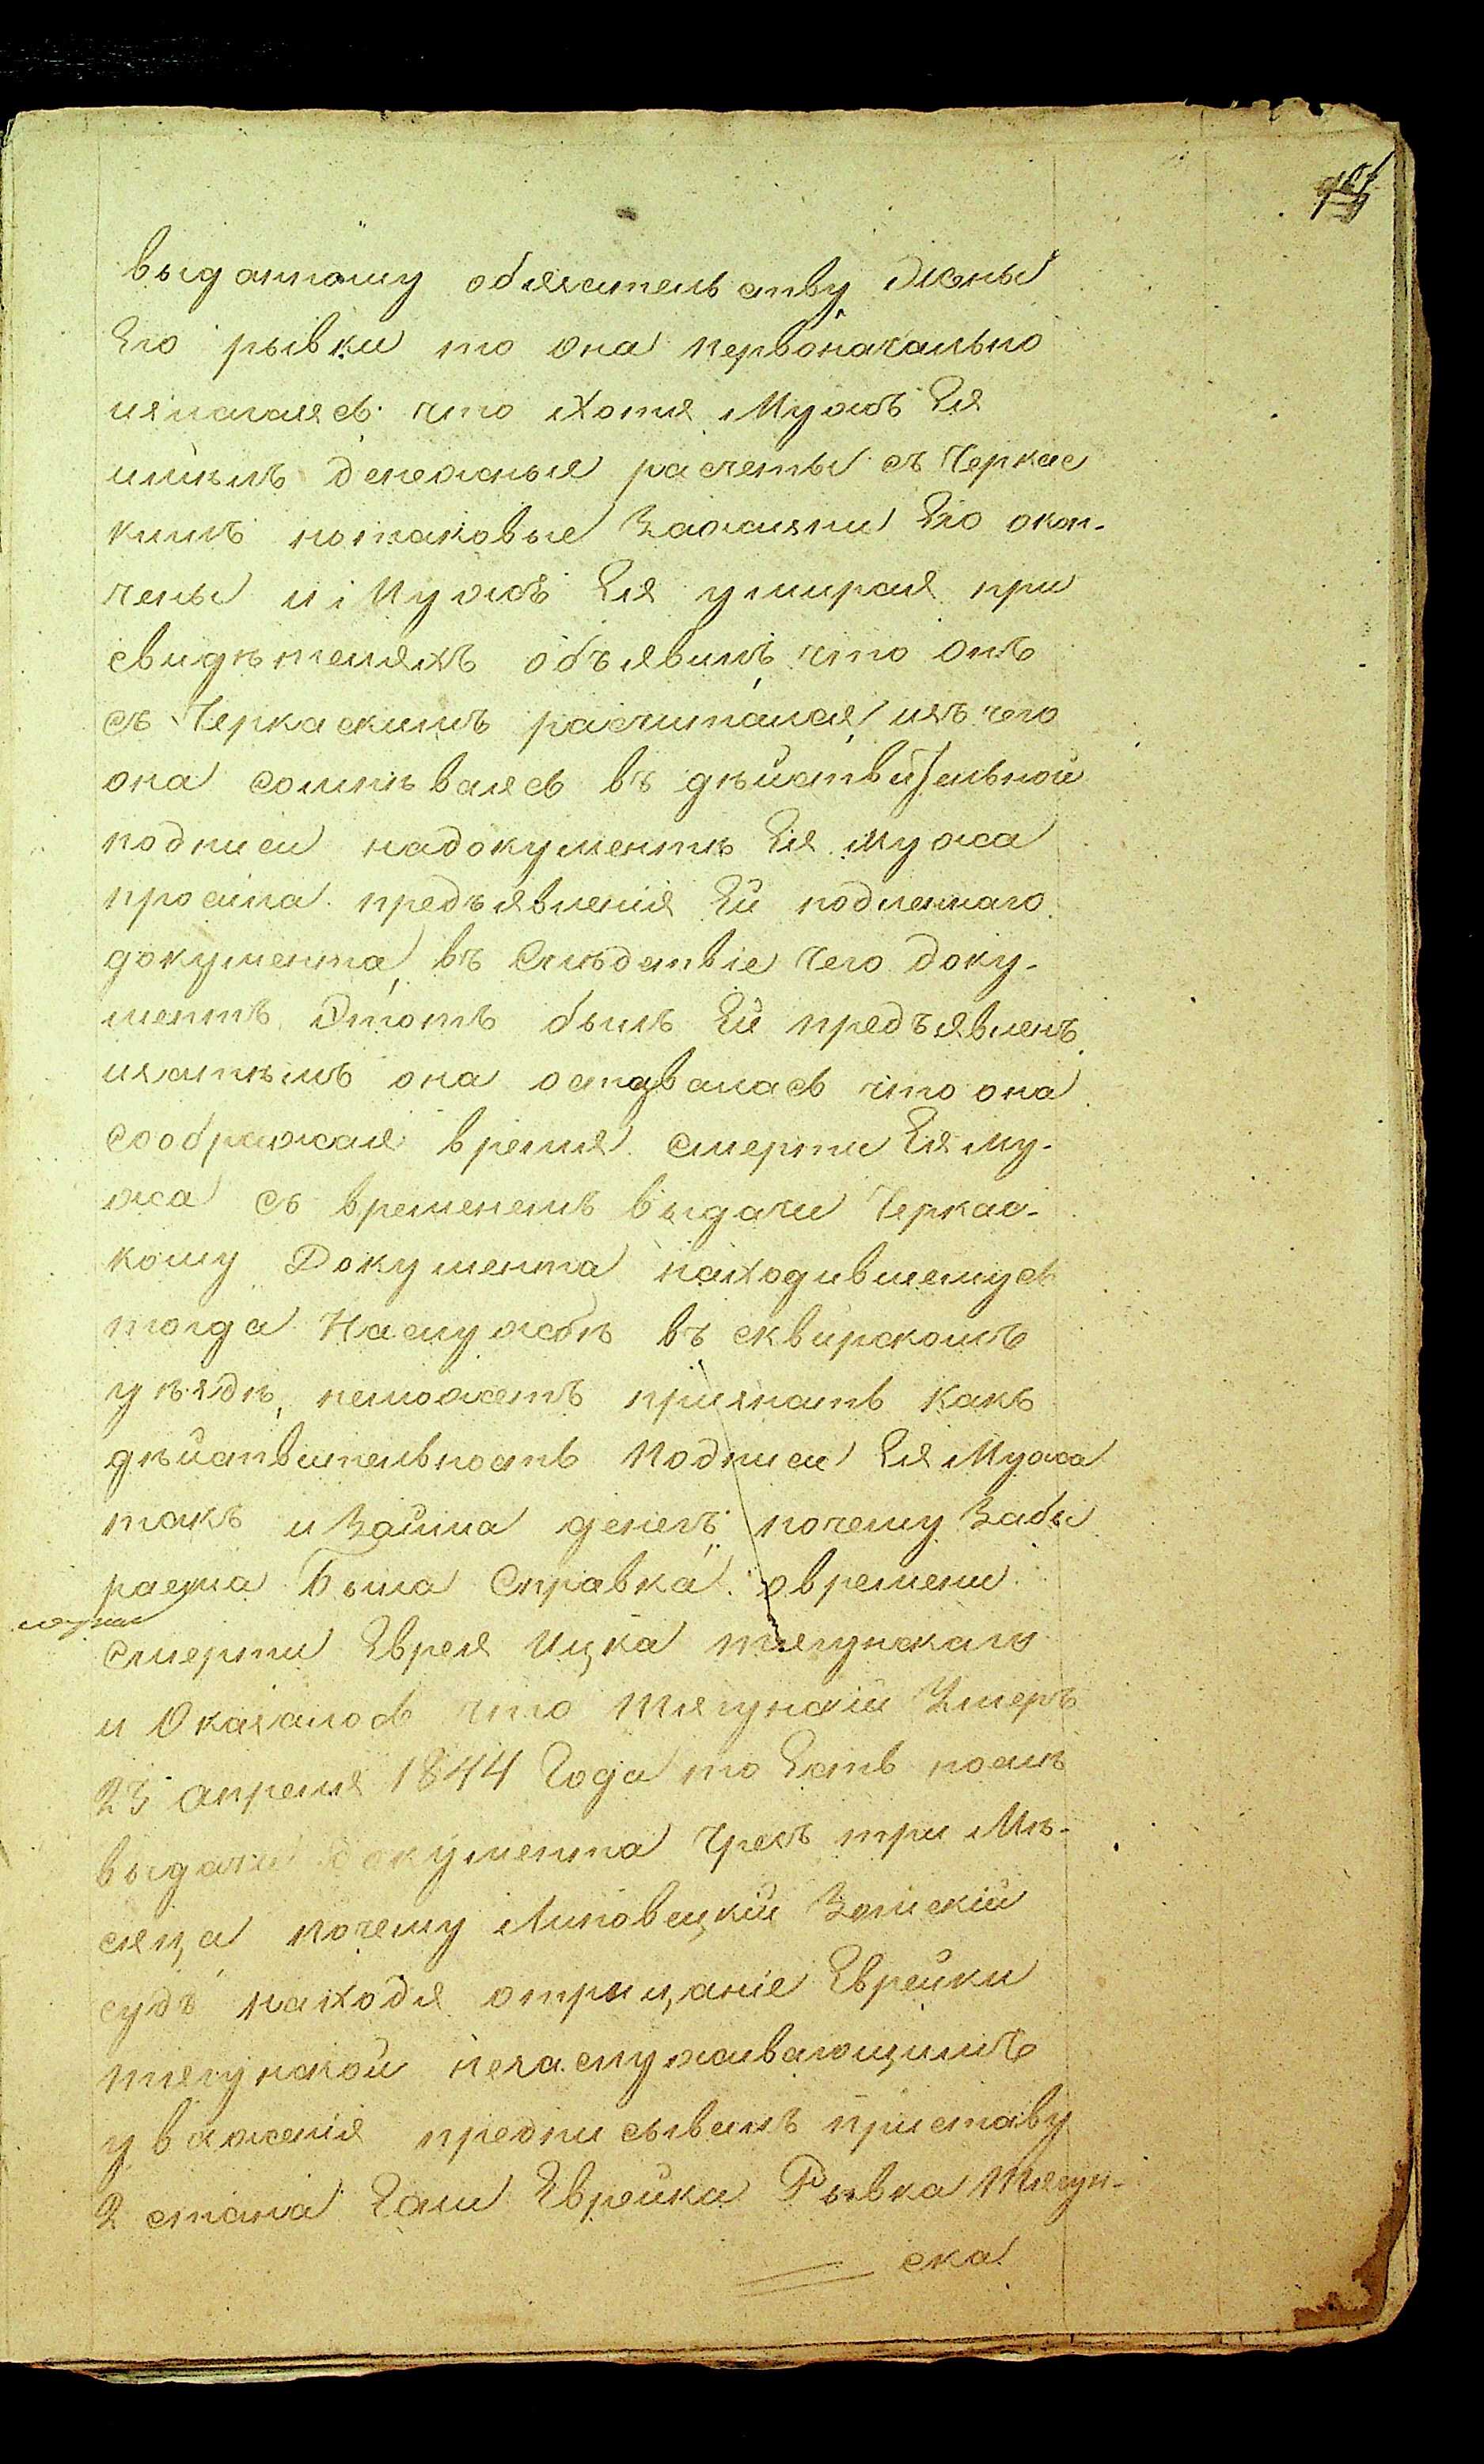 выданному обязательству жены
Его рывки то она первоначально
изъясняясь что хотя Мужъ Ея
имѣлъ денежныя расчеты съ Черкас
кимъ нотаковые Зажизни Его окон-
чены и Мужъ Ея умирая при
свидѣтеляхъ объявилъ, что онъ
съ Черкаскимъ расчитался, изъ чего
она сомнѣваясь въ дѣйствительной
подписи надокументѣ Ея мужа
просила предъявленія Ей подленнаго
документа, въ Слѣдствіе Чего доку-
ментъ Этотъ былъ Ей предъявленъ
изатѣмъ она оставалась что она
соображая время смерти Ея му-
жа съ временемъ выдачи Черкас-
кому Документа находившемуся
тогда Наслужбѣ въ сквирскомъ
уѣздѣ, неможетъ признать какъ
дѣйствительность Подписи Ея Мужа
такъ и Займа денегъ почему Заби
раема Была Справка о времени
смерти Еврея Ицка тягунскаго
и Оказалось что тягунскій Умеръ
23 апреля 1844 Года то Есть послѣ
выдачи документа Чрезъ три Мѣ-
сяца почему Липовецкій Земскій
судъ находя отрицаніе Еврейки
тягунской незаслуживающимъ
уваженія предписывалъ приставу
2 стана Если Еврейка Рывка тягун-
ска